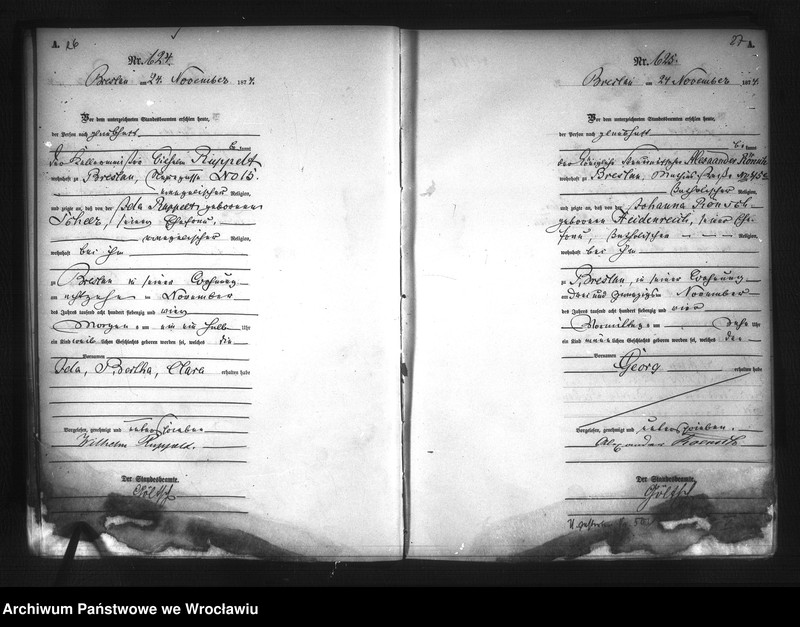 A. 26
Nr. 624.
Breslau am 24. November 1874.
Vor dem unterzeichneten Standesbeamten erschien heute,
der Person nach
kannt,
der Wilhelm Ruppelt
wohnhaft zu Breslau, No 15.
evangelischer Religion,
und zeigte an, daß von der Ida Ruppelt geborenen
seiner Ehefrau,
evangelischer Religion,
wohnhaft bei ihm
zu Breslau in seiner Wohnung
am achtzehn November
des Jahres tausend acht hundert siebenzig und vier
Morgens um ein ein halb Uhr
ein Kind weiblichen Geschlechts geboren worden sei, welches die
Vornamen
Ida, Bertha, Clara erhalten habe
Vorgelesen, genehmigt und unterschrieben
Wilhelm Ruppelt.
Der Standesbeamte.
27 A.
Nr. 625.
Breslau am 24 November 1874.
Vor dem unterzeichneten Standesbeamten erschien heute,
der Person nach
kannt,
der Königliche Alexander
wohnhaft zu Breslau,
katholischer Religion,
und zeigte an, daß von der Johanna
geborenen Heidenreich, seiner Ehefrau,
katholischer Religion,
wohnhaft bei ihm
zu Breslau, in seiner Wohnung
am drei und zwanzigsten November
des Jahres tausend acht hundert siebenzig und vier
Vormittags um zehn Uhr
ein Kind männlichen Geschlechts geboren worden sei, welches den
Vornamen
Georg erhalten habe
Vorgelesen, genehmigt und unterschrieben.
Alexander
Der Standesbeamte.
Archiwum Państwowe we Wrocławiu